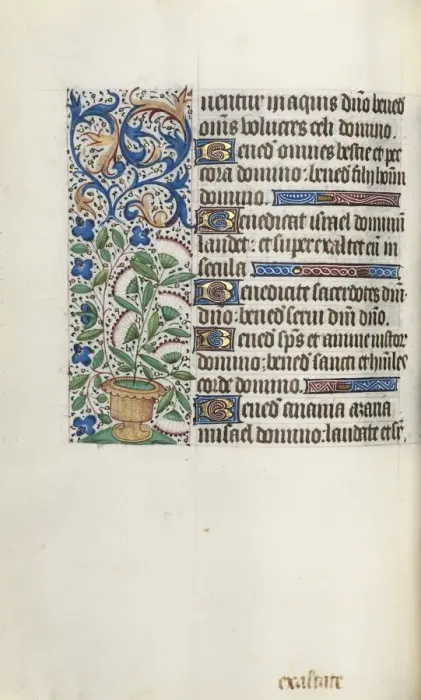 uentur in aquis dño bened̃
om̃s volucres celi domino.
Bened̃ omnes bestie et pec
cora domino: bened̃ filij homĩ
domino.
Benedicat israel dominũ
laudet: et superexaltet eũ in
secula
Benedicite sacerdotes dñi
dño: bened̃ serui dñi dño.
Bened̃ sp̃s et anime iustor
domino: bened̃ sancti et humiles
corde domino.
Bened̃ anania azaria
misael domino: laudate et sr̃
exaltate